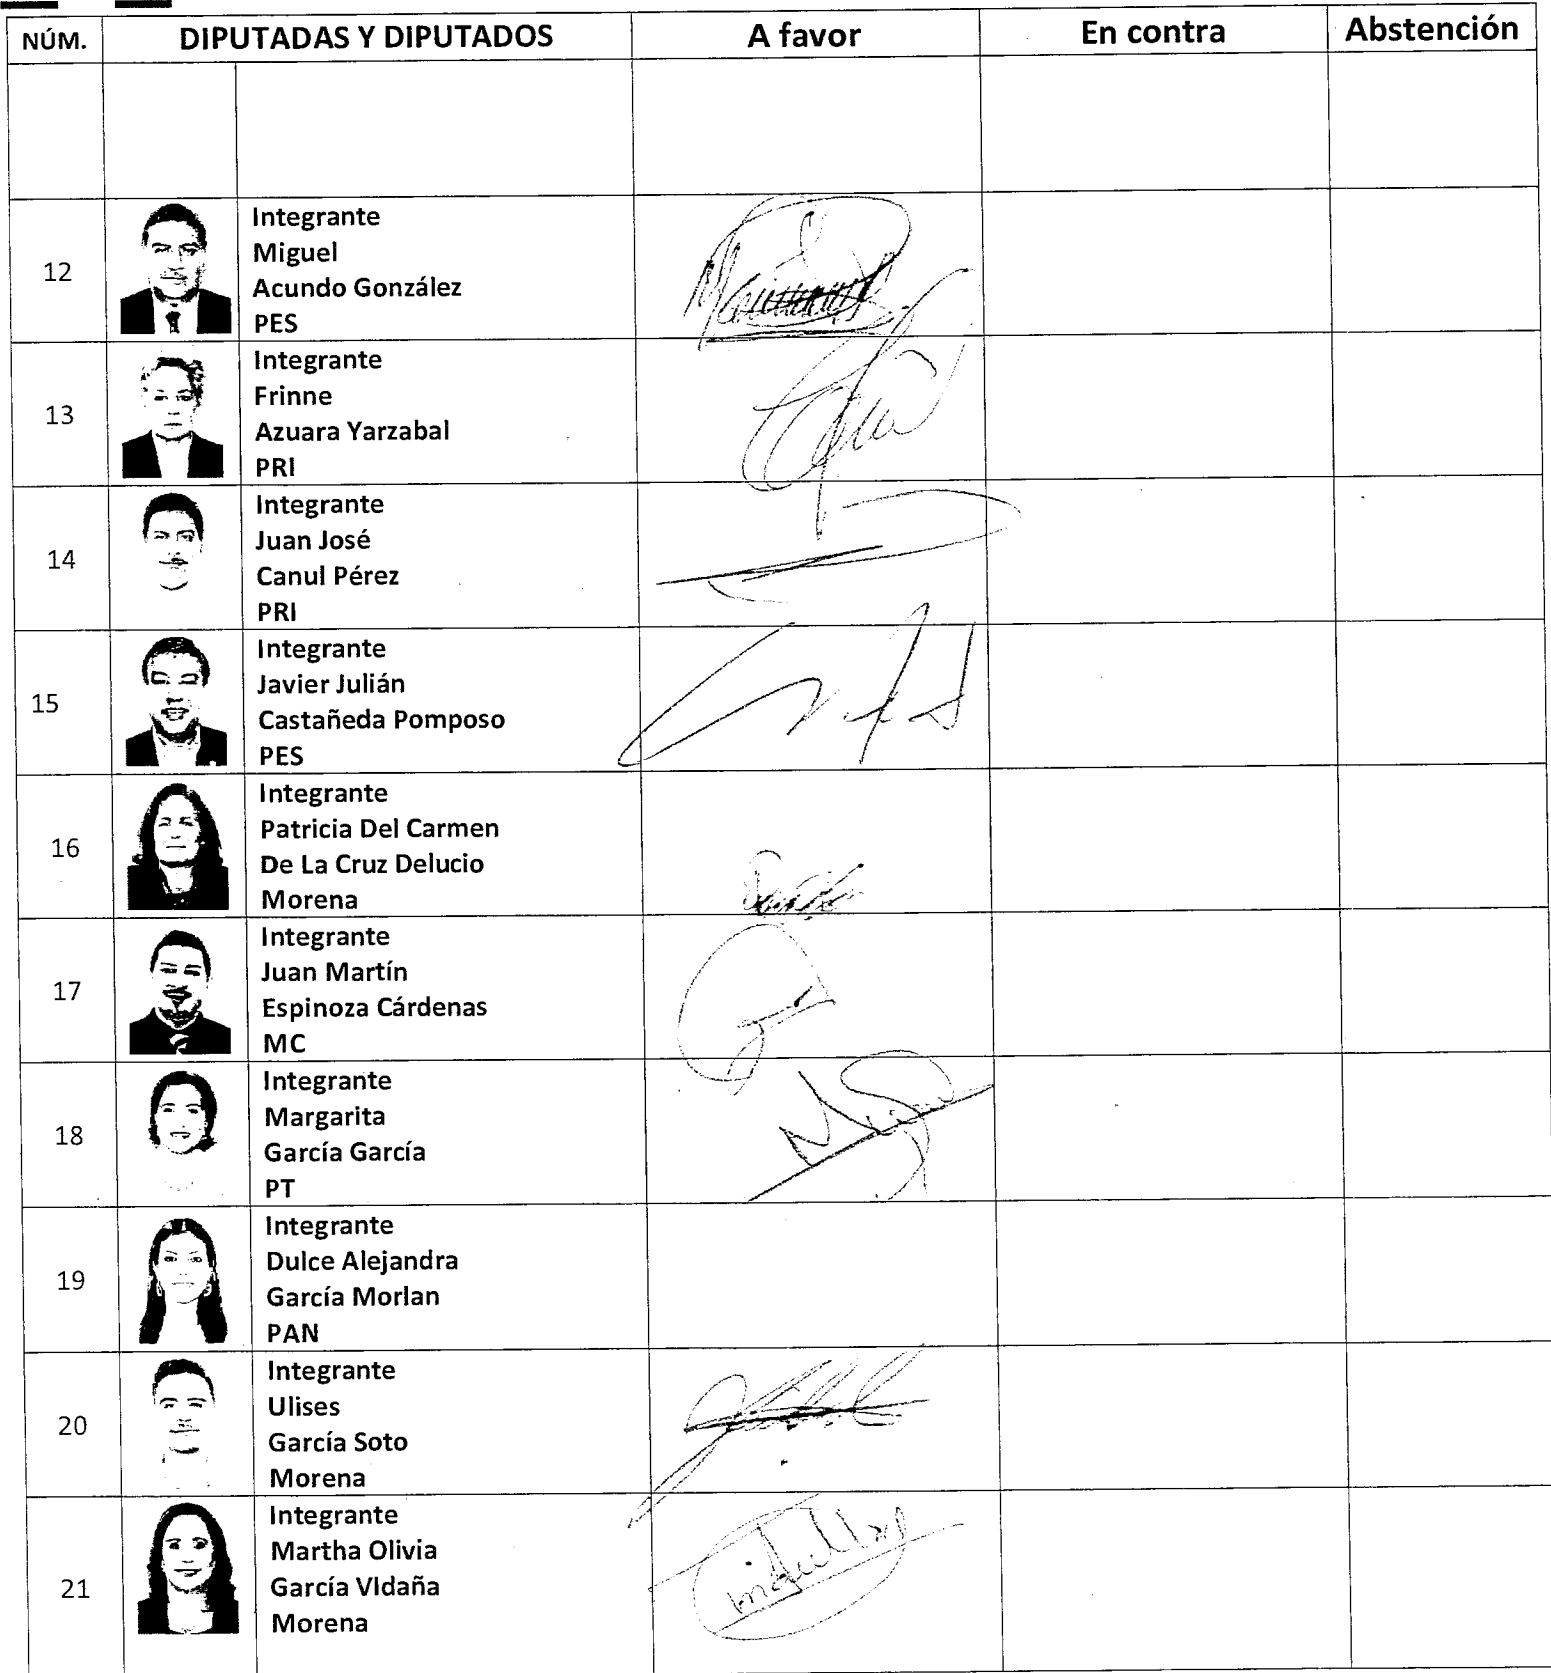 NÚM. DIPUTADAS Y DIPUTADOS A favor En contra Abstención
12
Integrante
Miguel
Acundo González
PES
13
Integrante
Frinne
Azuara Yarzabal
PRI
14
Integrante
Juan José
Canul Pérez
PRI
15
Integrante
Javier Julián
Castañeda Pomposo
PES
16
Integrante
Patricia Del Carmen
De La Cruz Delucio
Morena
17
Integrante
Juan Martín
Espinoza Cárdenas
MC
18
Integrante
Margarita
García García
PT
19
Integrante
Dulce Alejandra
García Morlan
PAN
20
Integrante
Ulises
García Soto
Morena
21
Integrante
Martha Olivia
García VIdaña
Morena